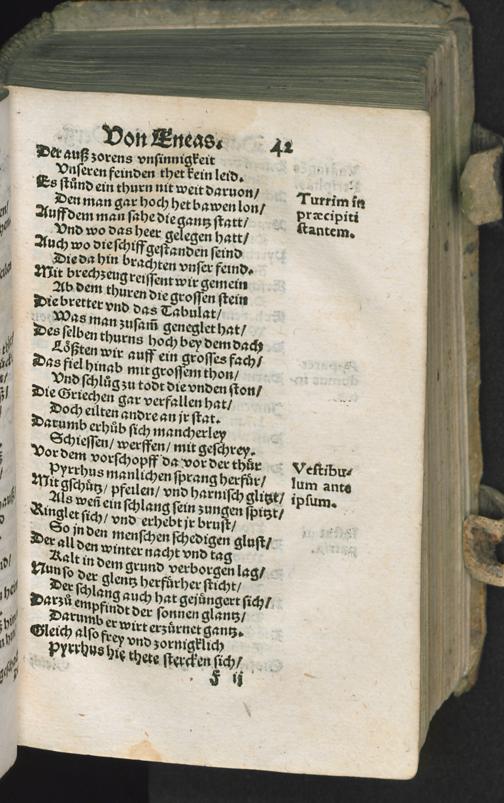 Von Æneas. 42
Der auß zorens vnsinnigkeit
Vnseren feinden thet kein leid.
Es stůnd ein thurn nit weit daruon/
Den man gar hoch het bawen lon/
Auff dem man sahe die gantz statt/
Vnd wo das heer gelegen hatt/
Auch wo die schiff gestanden seind
Die da hin brachten vnser feind.
Mit brechzeug reissent wir gemein
Ab dem thuren die grossen stein
Die bretter vnd das Tabulat/
Was man zusam̄ geneglet hat/
Des selben thurns hoch bey dem dach
Lößten wir auff ein grosses fach/
Das fiel hinab mit grossem thon/
Vnd schlůg zu todt die vnden ston/
Die Griechen gar verfallen hat/
Doch eilten andre an jr stat.
Darumb erhůb sich mancherley
Schiessen/ werffen/ mit geschrey.
Vor dem vorschopff da vor der thür
Pyrrhus manlichen sprang herfür/
Mit gschütz/ pfeilen/ vnd harnisch glitzt/
Als weñ ein schlang sein zungen spitzt/
Ringlet sich/ vnd erhebt jr brust/
So jn den menschen schedigen glust/
Der all den winter nacht vnd tag
Kalt in dem grund verborgen lag/
Nun so der glentz herfürher sticht/
Der schlang auch hat gejüngert sich/
Darzů empfindt der sonnen glantz/
Darumb er wirt erzürnet gantz.
Gleich also frey vnd zornigklich
Pyrrhus hie thete stercken sich/
F ij
Turrim in
præcipiti
stantem.
Vestibu-
lum ante
ipsum.